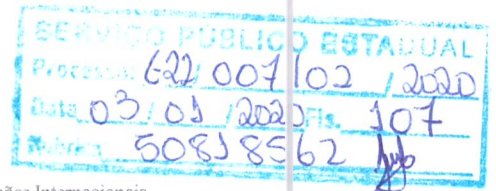 SERVIÇO PÚBLICO ESTADUAL
Processo. E22/007/02 /2020
Data 03/01/2020 Fls. 107
Rubrica 50818562
Internacionais